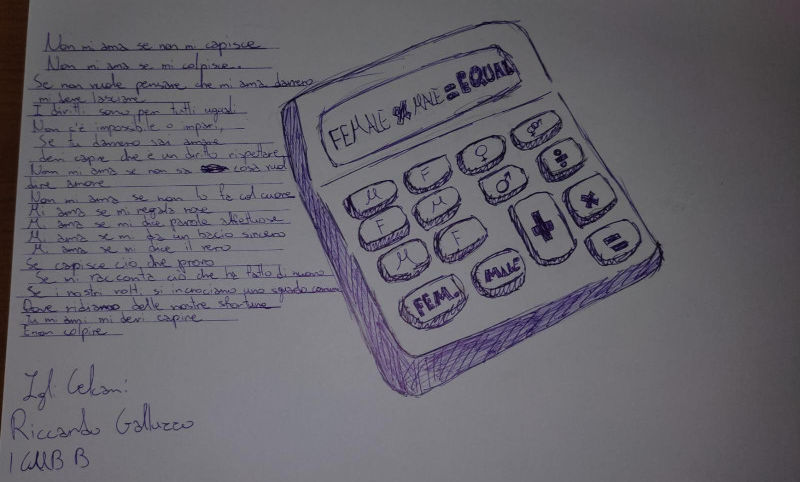 Non mi ama se non mi capisce
Non mi ama se mi colpisce..
Se non vuole pensare che mi ama davvero
mi deve lasciare
I diritti sono per tutti uguali
Non c'è impossibile o impari,
Se tu davvero sai amare
devi capire che è un diritto rispettare,
Non mi ama se non sa cosa vuol
dire amore
Non mi ama se non lo fa col cuore
Mi ama se mi regala rose
Mi ama se mi dice parole affettuose
Mi ama se mi dà un bacio sincero
Mi ama se mi dice il vero
Se capisce ciò che provo
Se mi racconta ciò che ha fatto di nuovo
Se i nostri volti si incrociano uno sguardo comune
Dove ridiamo delle nostre sfortune
Tu mi ami mi devi capire
E non colpire
Riccardo Galluzzo
FEMALE % MALE = EQUAL
M F ♀
F M ♂ ÷
M F + ×
FEM. MALE =